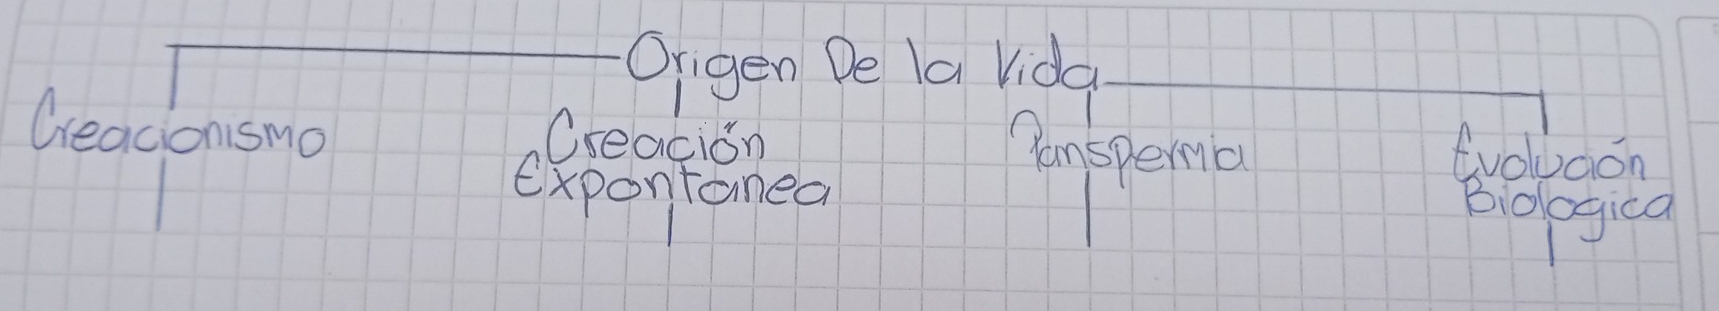 Origen De la Vida
Creacionismo
Creación
Expontanea
Panspermia
Evolución
Biologica